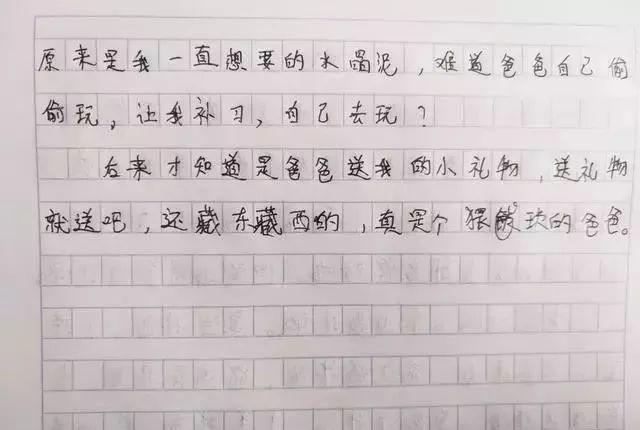 原来是我一直想要的水晶泥，难道爸爸自己偷
偷玩，让我补习，自己去玩？
后来才知道是爸爸送我的小礼物，送礼物
就送吧，还藏东藏西的，真是个猥的爸爸。